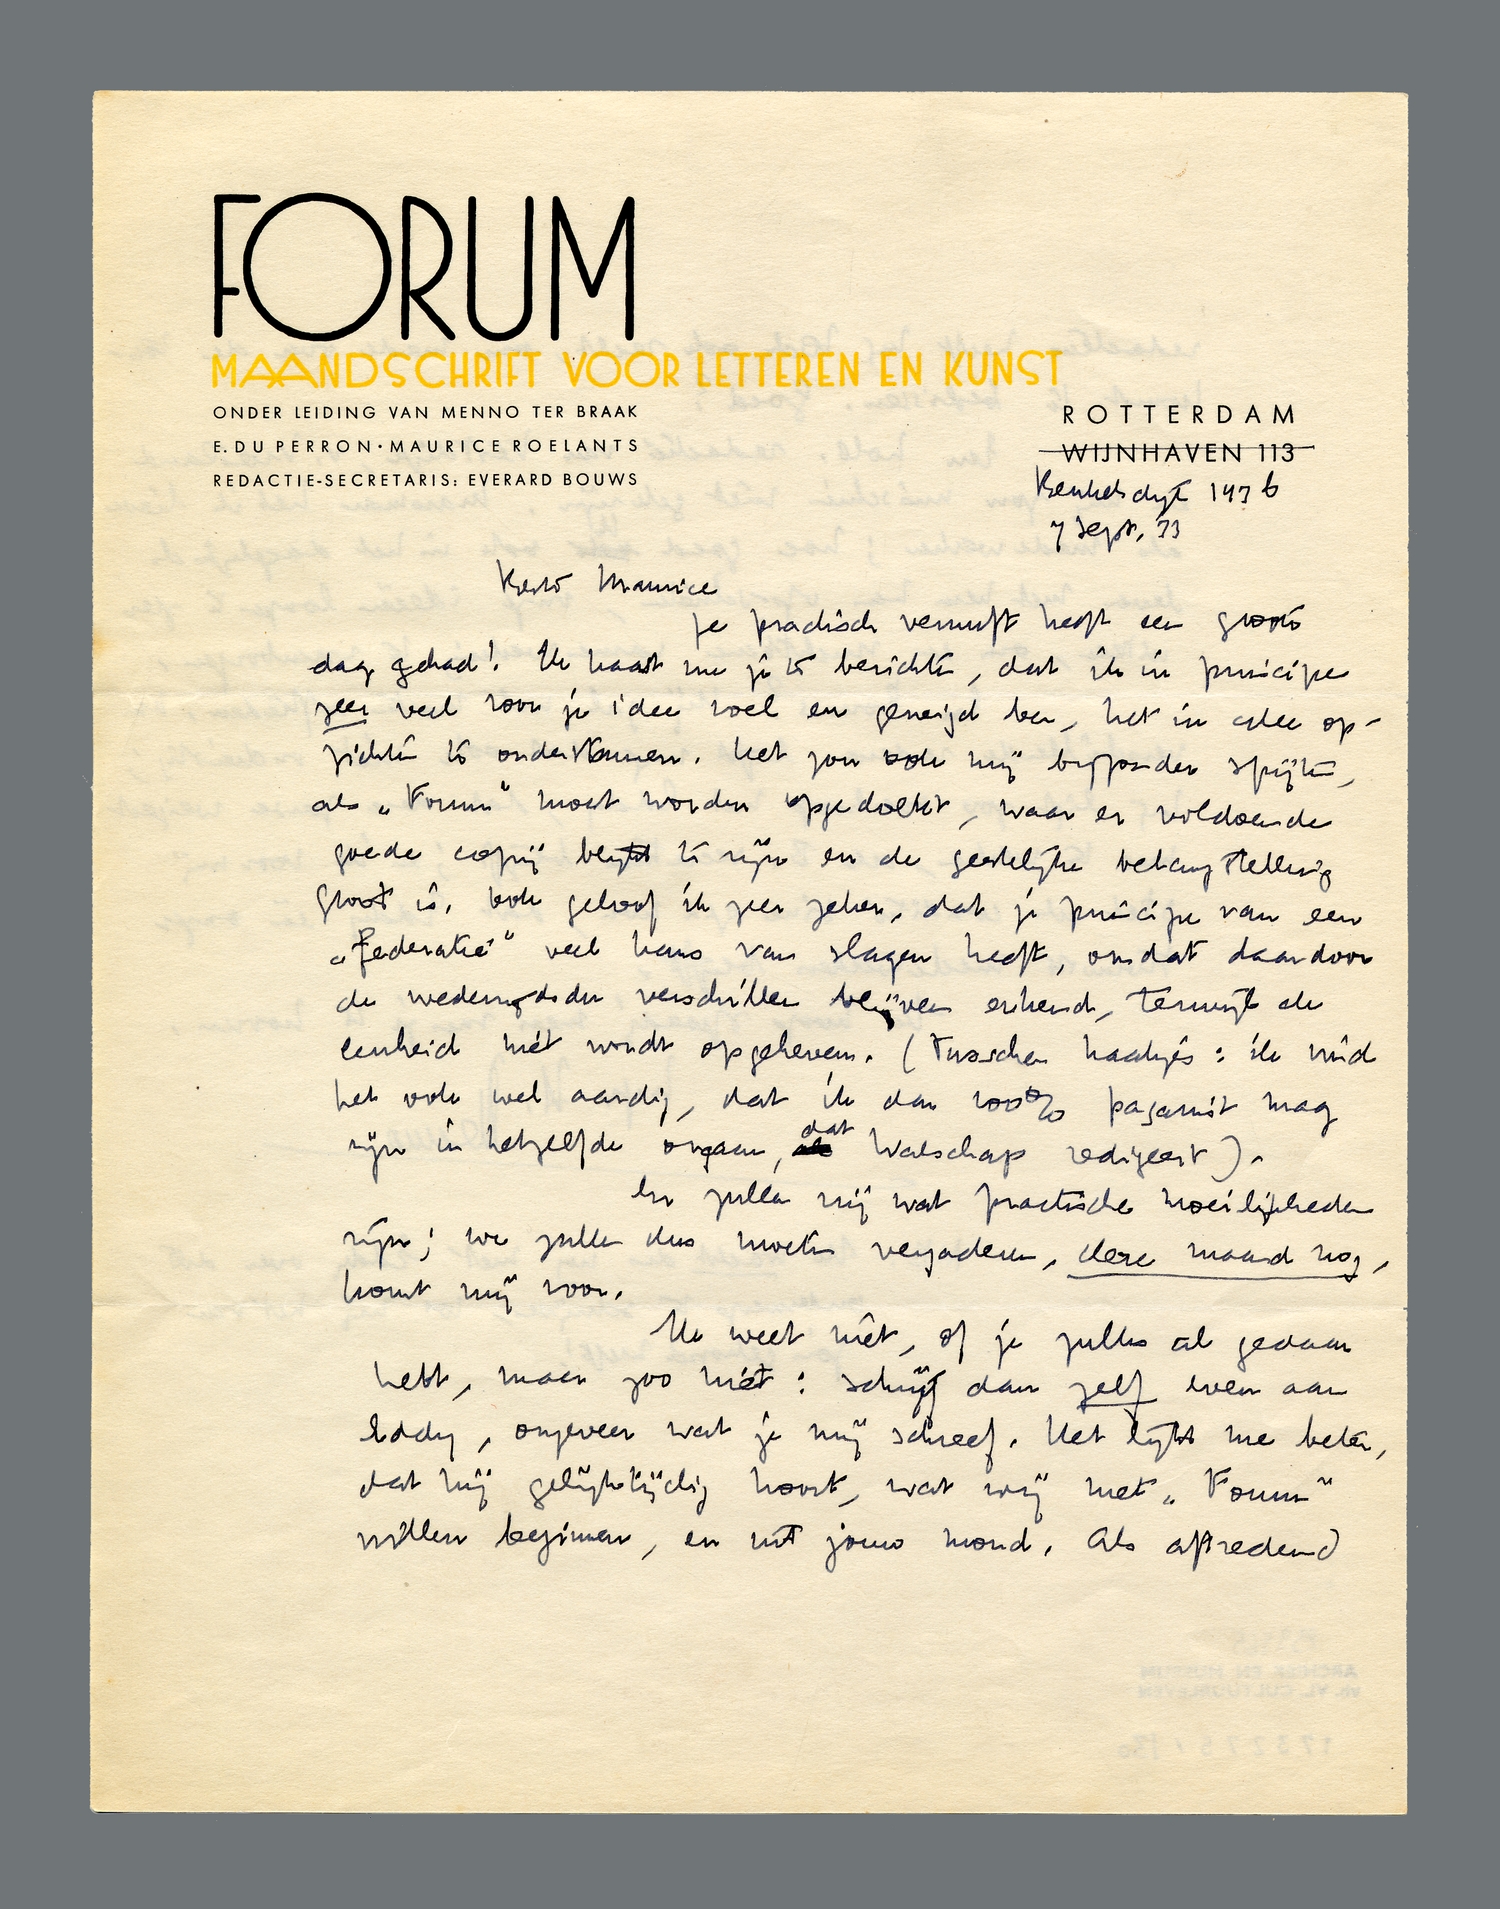 FORUM
MAANDSCHRIFT VOOR LETTEREN EN KUNST
ONDER LEIDING VAN MENNO TER BRAAK
E. DU PERRON · MAURICE ROELANTS
REDACTIE-SECRETARIS: EVERARD BOUWS
ROTTERDAM
WIJNHAVEN 113
Beukelsdijk 143 b
7 Sept. 33
Beste Maurice
Je practisch vernuft heeft een groote
dag gehad! Ik haast me je te berichten, dat ik in principe
zeer veel voor je idee voel en geneigd ben, het in alle op-
zichten te ondersteunen. Het zou ook mij bijzonder spijten,
als „Forum" moest worden opgedoekt, waar er voldoende
goede copij blijkt te zijn en de geestelijke belangstelling
groot is. Ook geloof ik zeer zeker, dat je principe van een
„federatie" veel kans van slagen heeft, omdat daardoor
de wederzijdsche verschillen blijven erkend, terwijl de
eenheid niet wordt opgeheven. (Tusschen haakjes: ik vind
het ook wel aardig, dat ik dan 100% paganist mag
zijn in hetzelfde orgaan, dat Walschap redigeert).
Er zullen nog wat practische moeilijkheden
zijn; we zullen dus moeten vergaderen, deze maand nog,
komt mij voor.
Ik weet niet, of je zulks al gedaan
hebt, maar zoo niet: schrijf dan zelf even aan
Eddy, ongeveer wat je mij schreef. Het lijkt me beter,
dat hij gelijktijdig hoort, wat wij met „Forum"
willen beginnen, en uit jouw mond. Als aftredend